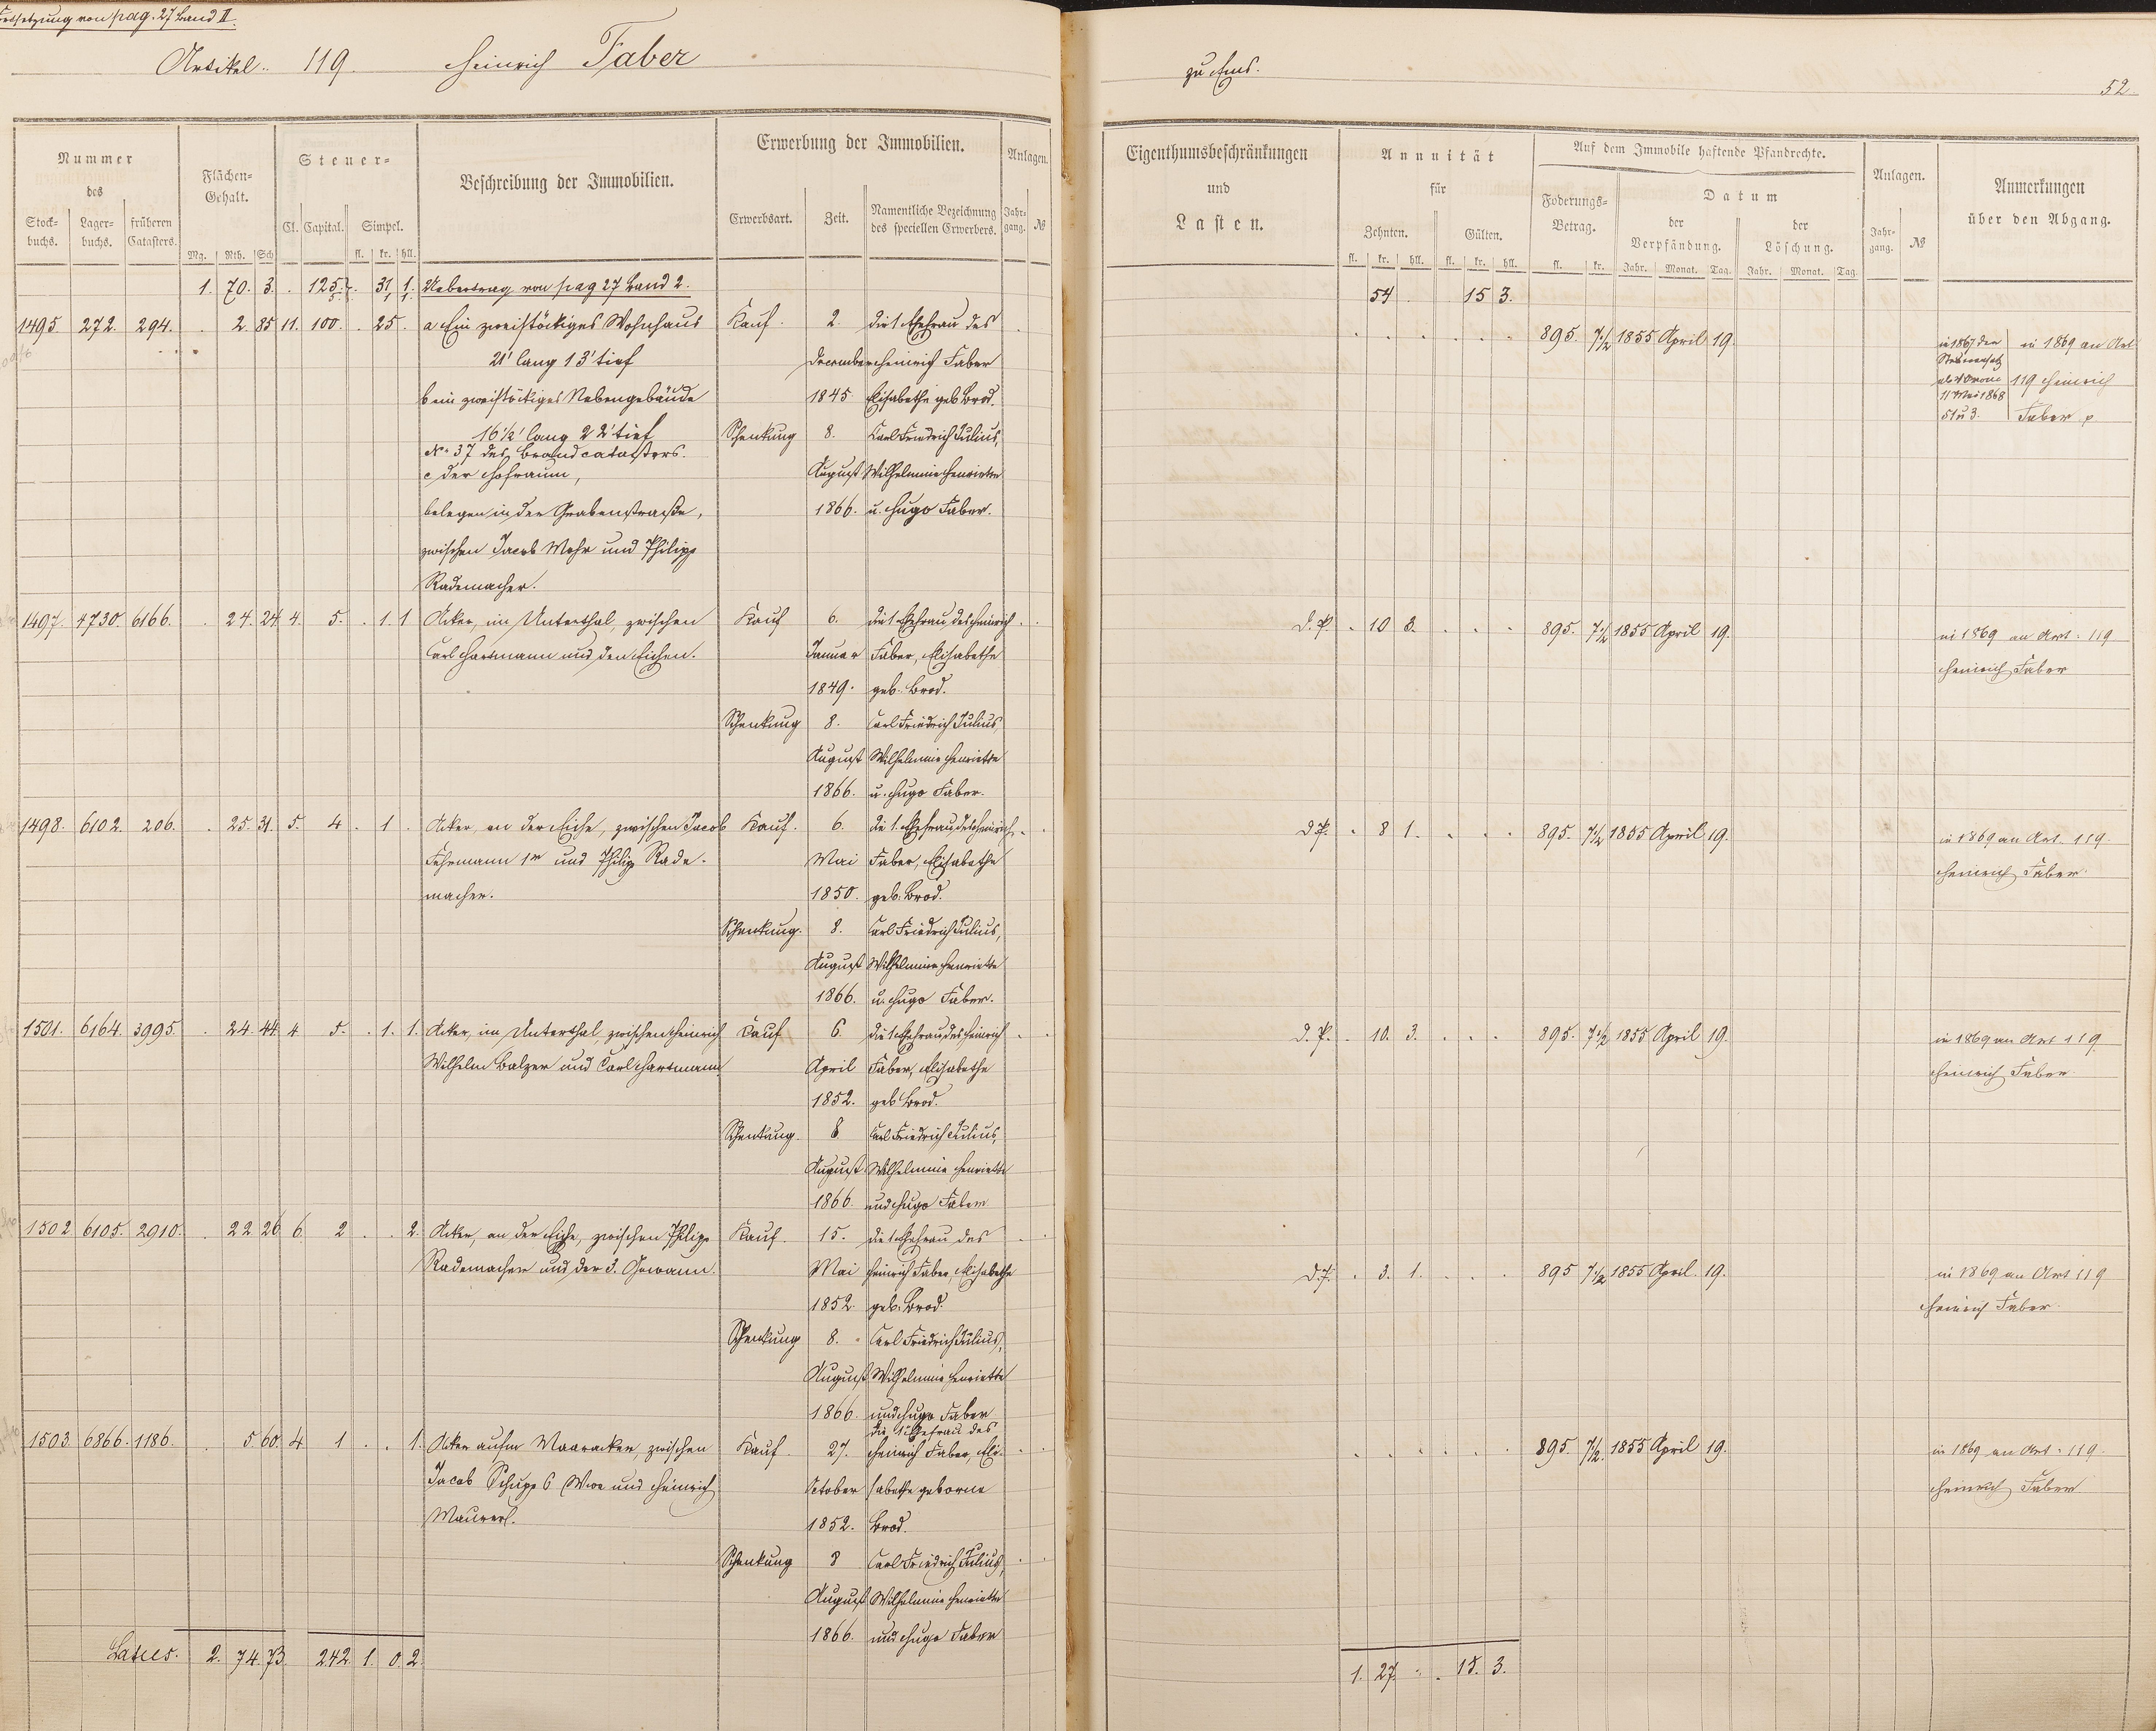 Fortsetzung von pag. 27 Band II.
Artikel. 119. Heinrich Faber
zu Ems.
52.
Nummer des
Stock-buchs. Lager-buchs. früheren Catasters.
Flächen-Gehalt.
Mg. Rth. Sch.
Steuer-
Cl. Capital. Simpel.
fl. kr. hll.
Beschreibung der Immobilien.
Erwerbung der Immobilien.
Erwerbsart. Zeit. Namentliche Bezeichnung des speciellen Erwerbers.
Anlagen.
Jahr-gang. №
Eigenthumsbeschränkungen und Lasten.
Annuität für
Zehnten. Gülten.
fl. kr. hll. fl. kr. hll.
Auf dem Immobile haftende Pfandrechte.
Foderungs-Betrag.
fl. kr.
Datum
der Verpfändung. der Löschung.
Jahr. Monat. Tag. Jahr. Monat. Tag.
Anlagen.
Jahr-gang. №
Anmerkungen über den Abgang.
1. 70. 3. 125. 31 1. Uebertrag von pag 27 Band 2. 54 15 3.
1495. 272. 294. 2. 85 11. 100. 25. a Ein zweistöckiges Wohnhaus Kauf. 2. die 1 Ehefrau des 895. 7½ 1855 April 19.
21' lang 13' tief December Heinrich Faber
b ein zweistöckiges Nebengebäude 1845 Elisabethe geb Brod.
16½' lang 22' tief Schenkung 8. Carl Friedrich Julius,
No 37 des Brandcatasters.
c der Hofraum, August Wilhelmine Henriette
belegen in der Grabenstraße, 1866. u. Hugo Faber.
zwischen Jacob Mohr und Philipp
Rademacher.
in 1867 den
11 Mai 1868
51 u 3.
in 1869 an Art
119 Heinrich
Faber
1497. 4730. 6166. 24. 24. 4. 5. 1. 1 Acker, im Unterthal, zwischen Kauf 6. die 1 Ehefrau des Heinrich d. P. 10 3. 895. 7½ 1855 April 19. in 1869 an Art: 119
Carl Hartmann und den Eichen. Januar Faber, Elisabethe Heinrich Faber
1849. geb. Brod.
Schenkung 8. Carl Friedrich Julius,
August Wilhelmine Henriette
1866. u. Hugo Faber.
1498. 6102. 206. 25. 31. 5. 4 1 Acker, an der Eiche, zwischen Jacob Kauf. 6. die 1. Ehefrau des Heinrich d. P. 8 1. 895. 7½ 1855 April 19. in 1869 an Art. 119.
Fuhrmann 1r und Philipp Rade- Mai Faber, Elisabethe Heinrich Faber
macher. 1850. geb. Brod.
Schenkung. 8. Carl Friedrich Julius,
August Wilhelmine Henriette
1866. u. Hugo Faber.
1501. 6164. 3995. 24. 44. 4. 5. 1. 1. Acker, im Unterthal, zwischen Heinrich Kauf 6 die 1 Ehefrau des Heinrich d. P. 10. 3. 895. 7½ 1855 April 19. in 1869 an Art 119.
Wilhelm Balzer und Carl Hartmann April Faber, Elisabethe Heinrich Faber
1852. geb Brod.
Schenkung. 8 Carl Friedrich Julius,
August Wilhelmine Henriette
1866. und Hugo Faber
1502 6105. 2910. 22 26 6. 2 2. Acker, an der Eiche, zwischen Philipp Kauf. 15. die 1 Ehefrau des
Rademacher und der 3. Gewann. Mai Heinrich Faber, Elisabethe d. P. 3. 1. 895 7½ 1855 April. 19. in 1869 an Art 119
1852. geb. Brod. Heinrich Faber.
Schenkung 8. Carl Friedrich Julius,
August Wilhelmine Henriette
1866. und Hugo Faber
die 1 Ehefrau des
1503 6866. 1186. 5. 60. 4 1 1. Acker aufm Waaracker, zwischen Kauf. 27. Heinrich Faber, Eli- 895. 7½. 1855 April 19. in 1869 an Art: 119.
Jacob Schupp 6 Wwe und Heinrich October sabethe geborne Heinrich Faber
Maurer. 1852. Brod.
Schenkung 8 Carl Friedrich Julius,
August Wilhelmine Henriette
1866. und Hugo Faber
Latus. 2. 74. 73. 242 1. 0. 2. 1. 27. 15. 3.